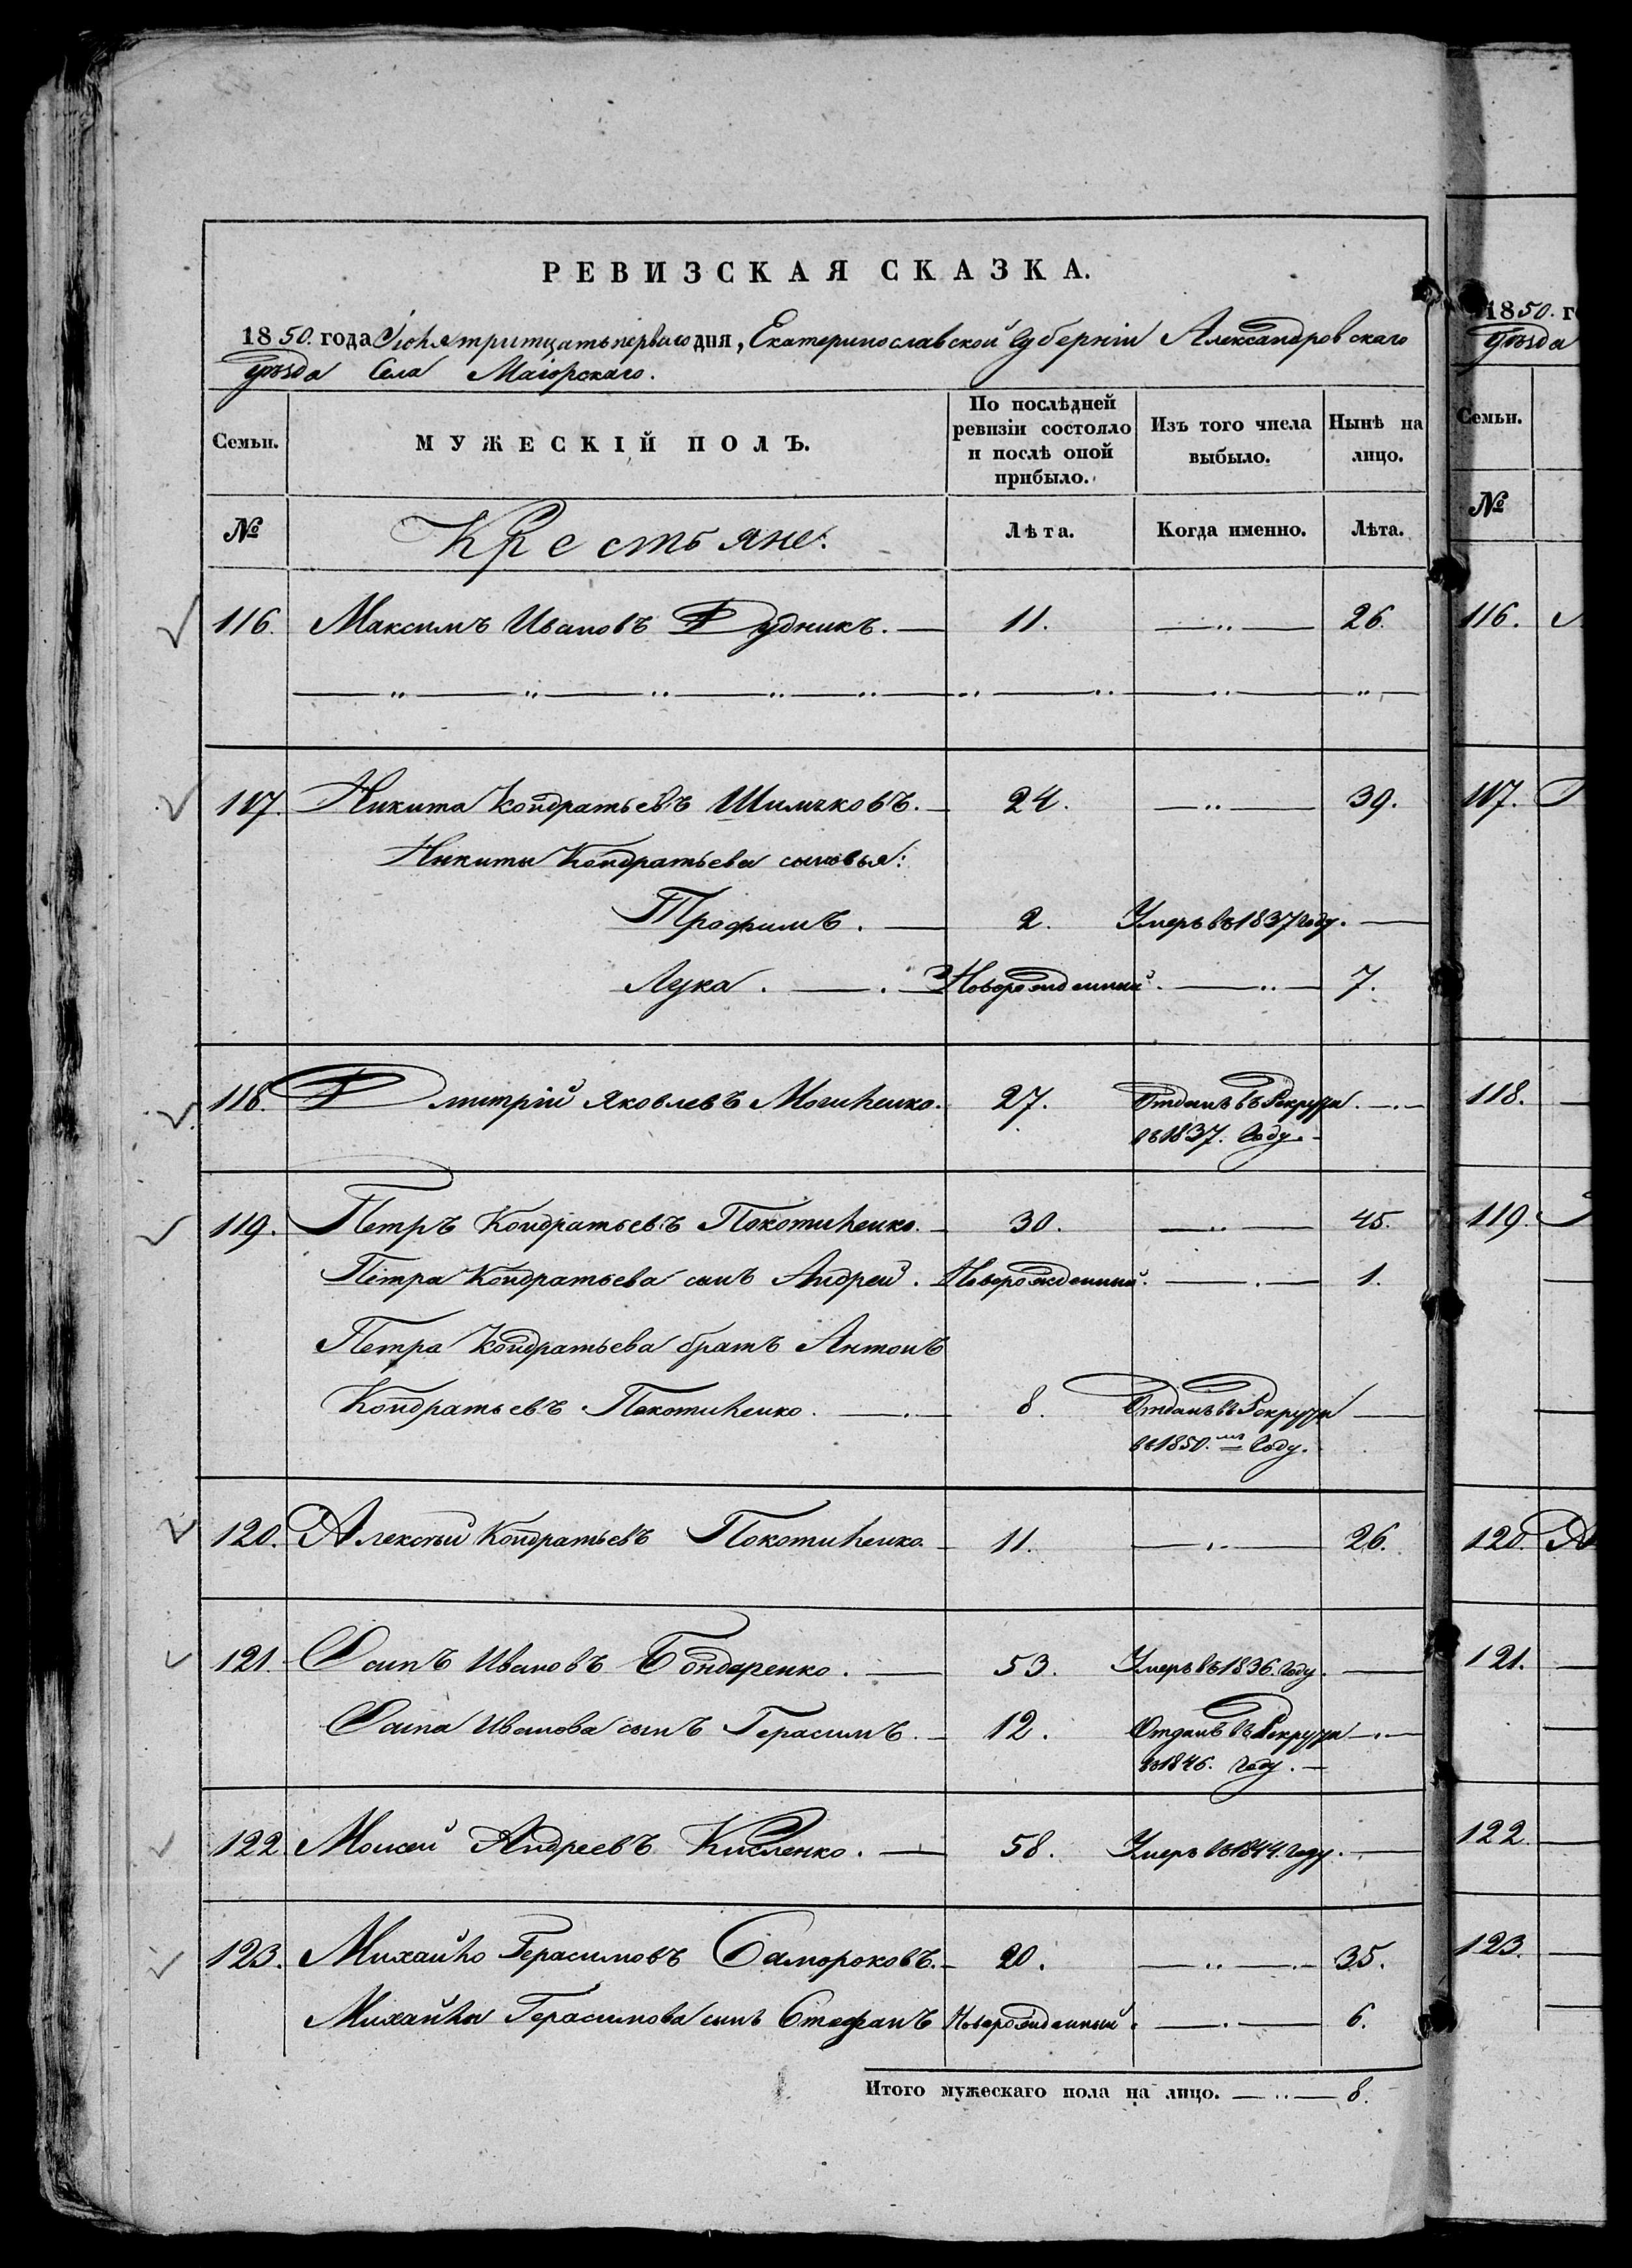 РЕВИЗСКАЯ СКАЗКА.
1850. года Іюля тритцать перваго дня, Екатеринославской Губерніи Александровскаго
уѣзда Села Маіорскаго.
Семьи.
МУЖЕСКІЙ ПОЛЪ.
По послѣдней ревизіи состояло и послѣ оной прибыло.
Изъ того числа выбыло.
Нынѣ на лицо.
№
Крестьяне.
Лѣта.
Когда именно.
Лѣта.
116. Максимъ Ивановъ Дудникъ. 11. 26.
117. Никита Кондратьевъ Шимчковъ. 24. 39.
Никиты Кондратьева сыновья:
Трофимъ. 2. Умеръ въ 1837 году.
Лука. Новорожденный. 7.
118. Дмитрій Яковлевъ Могиленко. 27. Отданъ въ Рекруты
въ 1837. Году.
119. Петръ Кондратьевъ Покотиленко. 30. 45.
Петра Кондратьева сынъ Андрей. Новорожденный. 1.
Петра Кондратьева братъ Антонъ
Кондратьевъ Покотиленко. 8. Отданъ въ Рекруты
въ 1850.мъ Году.
120. Алексѣй Кондратьевъ Покотиленко. 11. 26.
121. Осипъ Ивановъ Бондаренко. 53. Умеръ въ 1836. Году.
Осипа Иванова сынъ Герасимъ. 12. Отданъ въ Рекруты
въ 1846. Году.
122 Моисей Андреевъ Кисленко. 58. Умеръ въ 1844. Году.
123. Михайло Герасимовъ Самороковъ. 20. 35.
Михайлы Герасимова сынъ Стефанъ Новорожденный. 6.
Итого мужескаго пола на лицо. 8.
1850. го
уѣзда
Семьи.
№
116.
117.
118.
119.
120.
121.
122.
123.